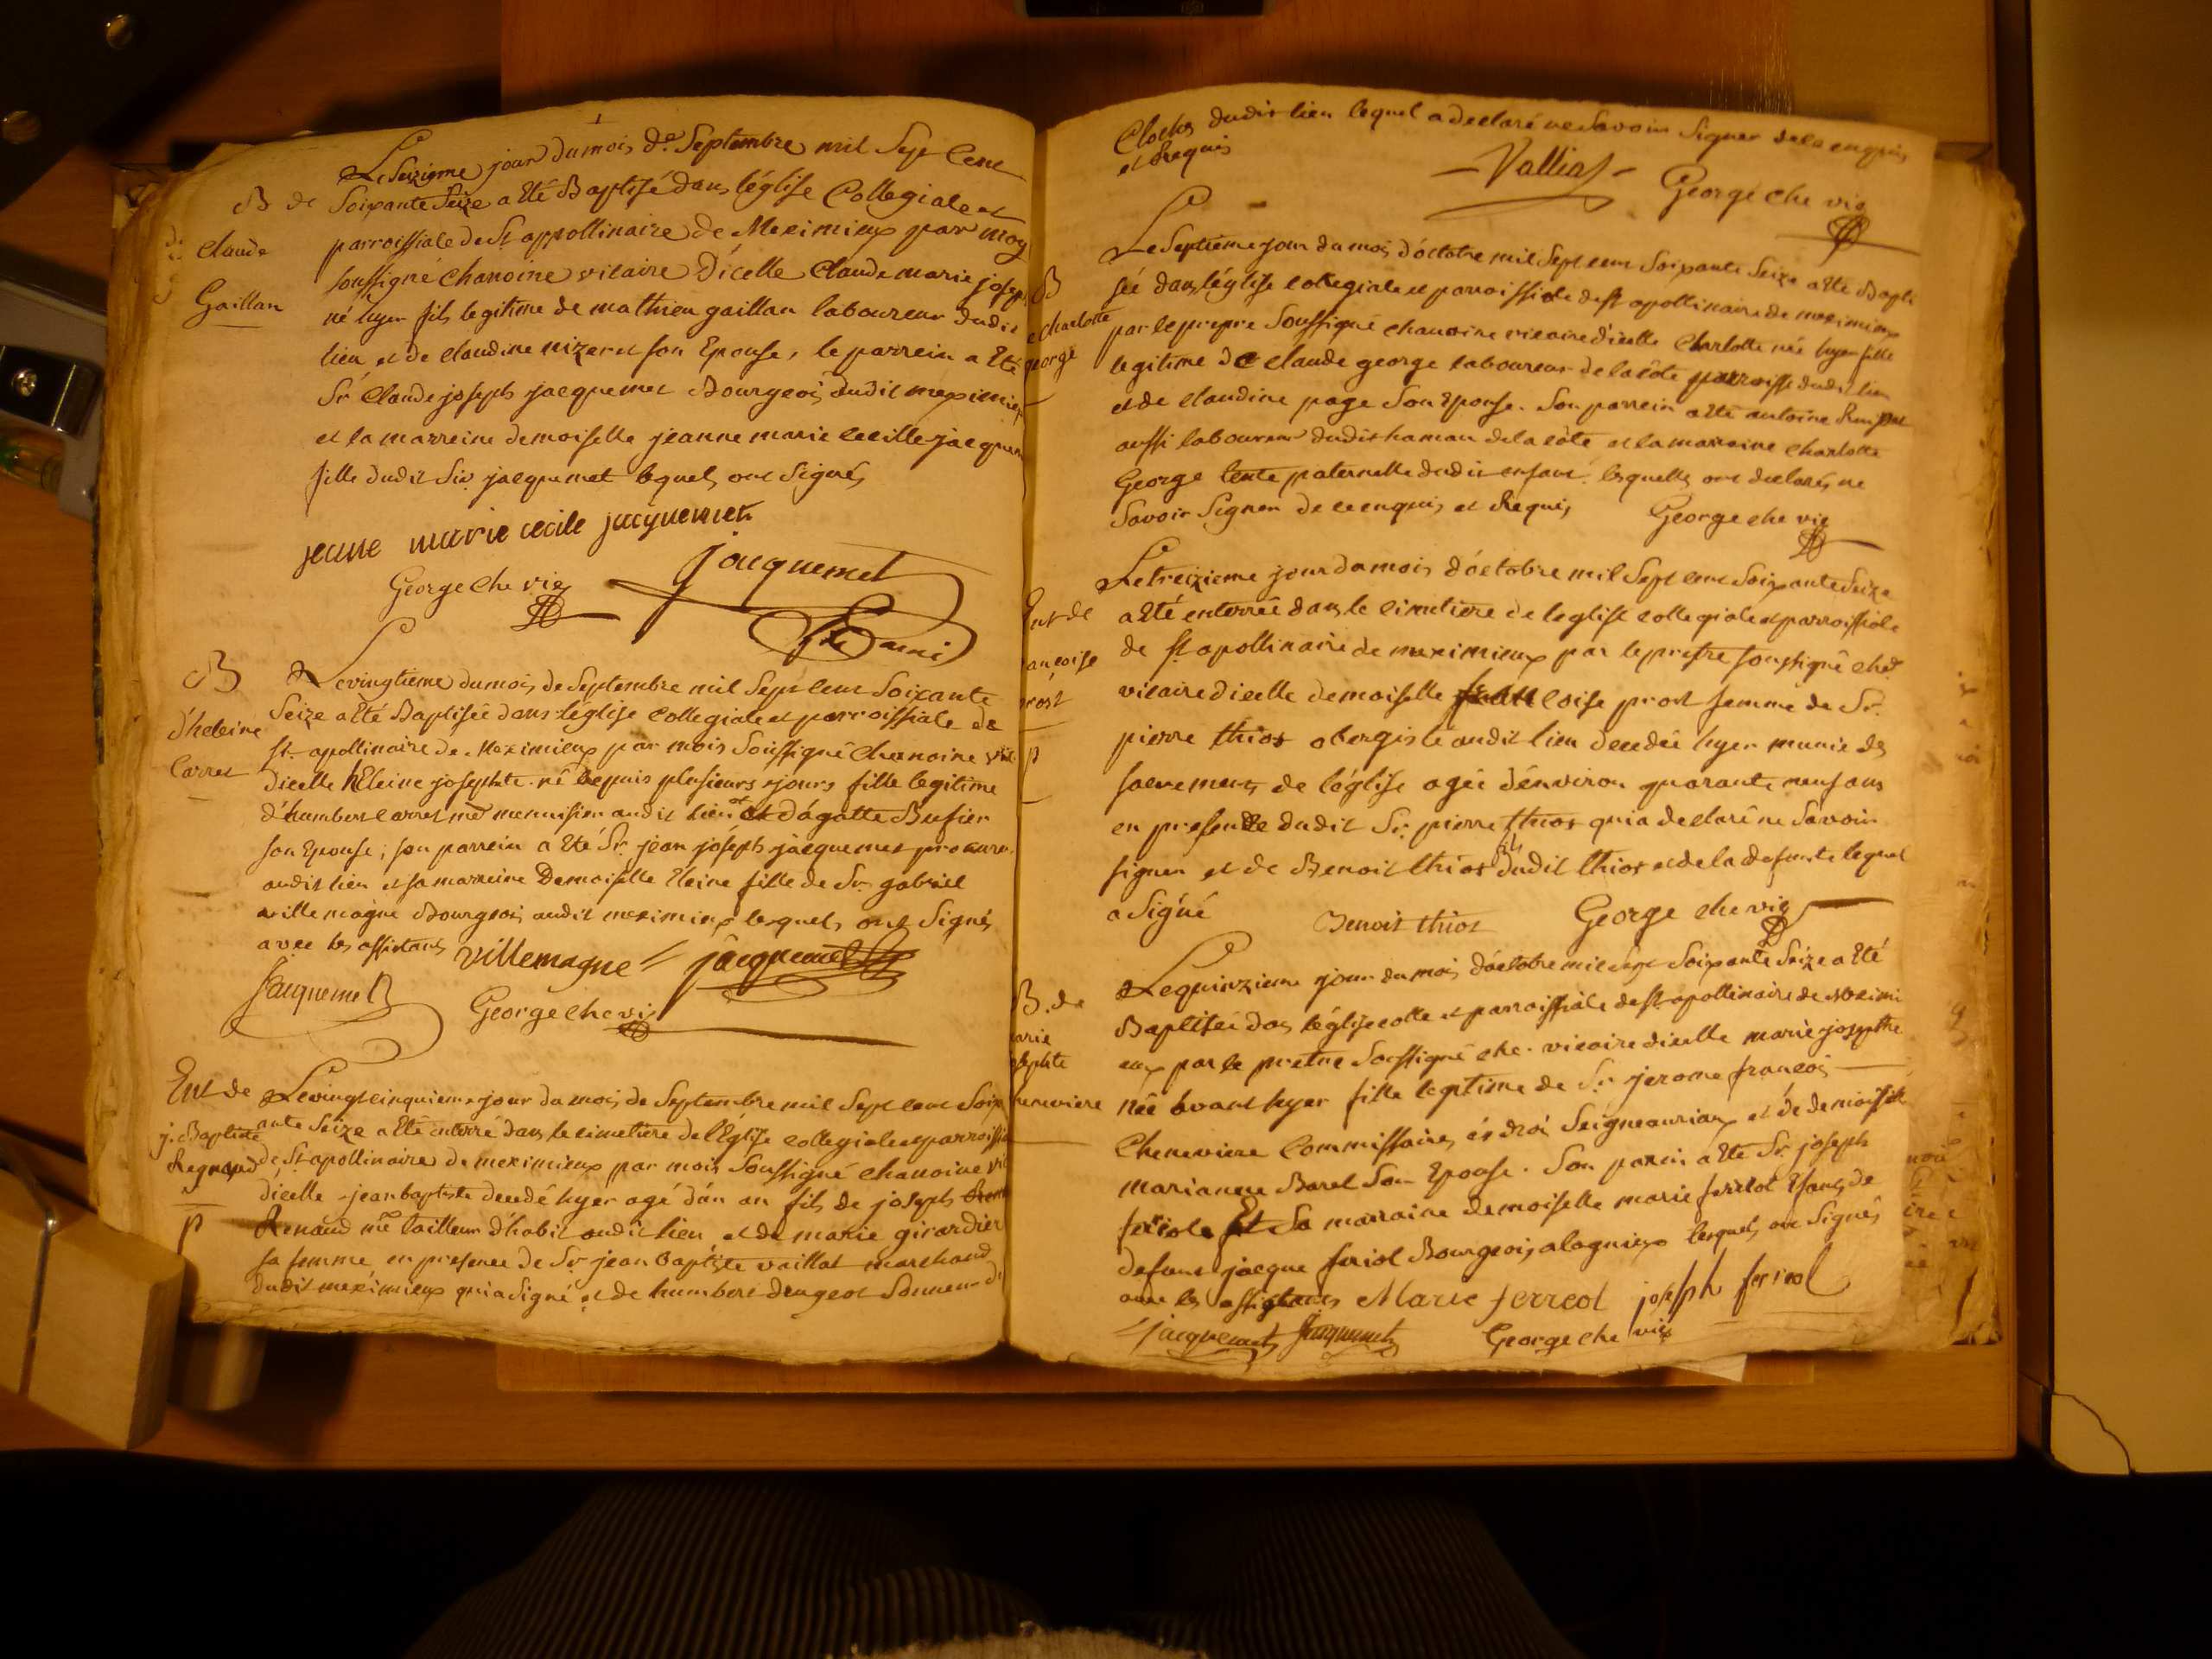 Le Seizieme jour du mois de Septembre mil Sept Cent
B de
Claude
Gaillan
Soixante Seize a Eté Baptisé dans l'église Collegiale et
parroissiale de St appollinaire de Meximieux par moy
soussigné chanoine vicaire d'icelle Claude marie joseph
né hyer fils legitime de mathieu gaillan laboureur dudit
lieu et de claudine nizeret son Epouse, le parrein a Eté
Sr Claude joseph jacquemet Bourgeois dudit meximieux
et la marreine demoiselle jeanne marie cecille jacquem
fille dudit Sir jacquemet lequels ont Signés
jeanne marie cecile jacquemet
jacquemet
George che vic
B
d'heleine
Carret
Le vingtieme du mois de Septembre mil Sept Cent Soixante
Seize a Eté Baptisée dans l'église collegiale et parroissiale de
St apollinaire de Meximieux par mois Soussigné Chanoine vic
dicelle hEleine josephte né depuis plusieurs jours fille legitime
d'humbert carret me menuisier audit lieu et d'agatte Bufier
son Epouse, son parrein a Eté Sr jean joseph jacquemet procure
audit lieu et sa marreine Demoiselle Eleine fille de Sr gabriel
ville magne Bourgeois audit meximieux lesquels ont Signés
avec les assistans
villemagne
jacquemet
Jacquemet
George che vic
Ent de
j. Baptiste
Regnaud
p
Le vingt cinquieme jour du mois de Septembre mil Sept cent Soix
ante Seize a Eté enterré dans le cimetiere de l'Eglise collegiale et parroissia
de St apollinaire de meximieux par mois Soussigné chanoine vic
dicelle jean baptiste decedé hyer agé d'un an fils de joseph
Renaud me tailleur d'habit audit lieu et de marie girardier
sa femme en presence de Sr jean Baptiste vaillat marchand
dudit meximieux qui a Signé et de humbert deugeot Sonneur d
Cloches dudit lieu lequel a declaré ne Savoir Signer de ce enquis
et Requis
Vallias
George che vic
B
e charlotte
george
Le Septieme jour du mois d'octobre mil Sept cent Soixante Seize a Eté Bapti
sée dans l'église collegiale et parroissiale de St apollinaire de meximieux
par le prepre Soussigné chanoine vicaire d'icelle Charlotte née hyer fille
legitime de claude george laboureur de la côte parroisse dudit lieu
et de claudine page Son Epouse. Son parrein a Eté antoine
aussi laboureur dudit hamau de la côte et la marreine charlotte
George tente paternelle dudit enfant lesquells ont declarés ne
Savoir Signer de ce enquis et Requis
George che vic
Ent de
ancoise
prost
p
Le treizieme jour du mois d'octobre mil Sept cent Soixante Seize
a Eté enterrée dans le cimetiere de l'eglise collegiale et parroissiale
de St apollinaire de meximieux par le prestre soussigné che
vicaire dicelle demoiselle coise prost femme de Sr
pierre thiot obergiste audit lieu decedée hyer munie des
sacremens de l'église agée d'environ quarante neuf ans
en presence dudit Sr pierre thiot qui a declaré ne Savoir
signer et de Benoit thiot fils dudit thiot et de la defunte lequel
a Signé
Benoit thiot
George che vic
B. de
arie
osephte
henevière
Le quinzieme jour du mois d'octobre mil Sept Soixante Seize a Eté
Baptisée dans l'église colle et parroissiale de St apollinaire de Meximi
eux par le prestre Soussigné che. vicaire dicelle marie josephte
née avant hyer fille legitime de Sr jerome francois
Cheneviere Commissaire ès droi Seigneuriaux et de demoiselle
marianne Borel Son Epouse. Son parein a Eté Sr joseph
feriole Et Sa marraine demoiselle marie feriolot Efans de
defunt jacque feriol Bourgeois a lagnieux lesquels ont Signés
avec les assistants
Marie ferreol
joseph ferreol
jacquemet
Jacquemet
George che vic